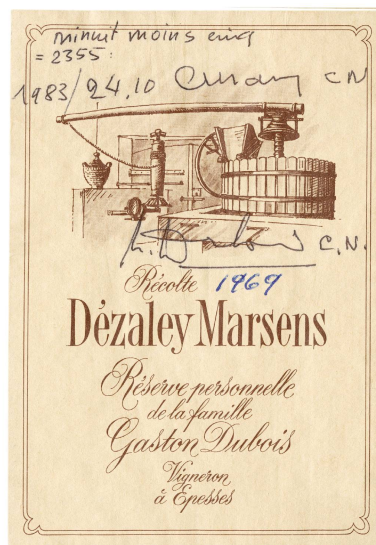 minuit moins cinq
= 2355.
1983/24.10 C.N.
C.N.
Récolte 1969
Dézaley Marsens
Réserve personnelle
de la famille
Gaston Dubois
Vigneron
à Epesses